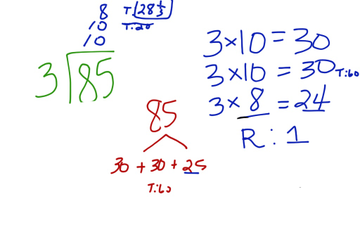 8 T: 28 1/3
10 T:20
10
3 85
85
30 + 30 + 25
T:60
3 × 10 = 30
3 × 10 = 30 T:60
3 × 8 = 24
R : 1